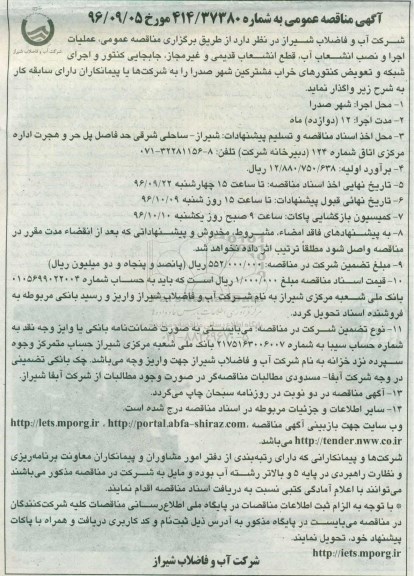 آگهی مناقصه عمومی به شماره ۴۱۴/۳۷۳۸۰ مورخ ۹۶/۰۹/۰۵
شرکت آب و فاضلاب شیراز
شرکت آب و فاضلاب شیراز در نظر دارد از طریق برگزاری مناقصه عمومی، عملیات
اجرا و نصب انشعاب آب، قطع انشعاب قدیمی و غیرمجاز، جابجایی کنتور و اجرای
شبکه و تعویض کنتورهای خراب مشترکین شهر صدرا را به شرکت‌ها یا پیمانکاران دارای سابقه کار
به شرح زیر واگذار نماید.
۱- محل اجرا: شهر صدرا
۲- مدت اجرا: ۱۲ (دوازده) ماه
۳- محل اخذ اسناد مناقصه و تسلیم پیشنهادات: شیراز- ساحلی شرقی حد فاصل پل حر و هجرت اداره
مرکزی اتاق شماره ۱۲۴ (دبیرخانه شرکت) تلفن: ۸-۳۲۲۸۱۱۵۶-۰۷۱
۴- برآورد اولیه: ۱۲/۸۸۰/۷۵۰/۶۳۸ ریال.
۵- تاریخ نهایی اخذ اسناد مناقصه: تا ساعت ۱۵ چهارشنبه ۹۶/۰۹/۲۲
۶- تاریخ نهائی قبول پیشنهادات: تا ساعت ۱۵ روز شنبه ۹۶/۱۰/۰۹
۷- کمیسیون بازگشایی پاکات: ساعت ۹ صبح روز یکشنبه ۹۶/۱۰/۱۰
۸- به پیشنهادهای فاقد امضاء، مشروط، مخدوش و پیشنهاداتی که بعد از انقضاء مدت مقرر در
مناقصه واصل شود مطلقاً ترتیب اثر داده نخواهد شد.
۹- مبلغ تضمین شرکت در مناقصه: ۵۵۲/۰۰۰/۰۰۰ ریال (پانصد و پنجاه و دو میلیون ریال)
۱۰- قیمت اسناد مناقصه مبلغ ۱/۰۰۰/۰۰۰ ریال است که باید به حساب شماره ۰۱۰۵۶۹۹۰۲۲۰۰۴
بانک ملی شعبه مرکزی شیراز به نام شرکت آب و فاضلاب شیراز واریز و رسید بانکی مربوطه به
فروشنده اسناد تحویل گردد.
۱۱- نوع تضمین شرکت در مناقصه می‌بایستی به صورت ضمانت‌نامه بانکی یا وایز وجه نقد به
شماره حساب سیبا به شماره ۲۱۷۵۱۶۳۰۰۶۰۰۷ بانک ملی شعبه مرکزی شیراز حساب متمرکز وجوه
سپرده نزد خزانه به نام شرکت آب و فاضلاب شیراز جهت واریز وجه می‌باشد. چک بانکی تضمینی
در وجه شرکت آبفا- مسدودی مطالبات مناقصه‌گر در صورت وجود مطالبات از شرکت آبفا شیراز.
۱۳- آگهی مناقصه در دو نوبت در روزنامه سبحان چاپ می‌گردد.
۱۴- سایر اطلاعات و جزئیات مربوطه در اسناد مناقصه درج شده است.
وب سایت جهت بازبینی آگهی مناقصه http://iets.mporg.ir ، http://portal.abfa-shiraz.com،
http://tender.nww.co.ir می‌باشد.
شرکت‌ها و پیمانکارانی که دارای رتبه‌بندی از دفتر امور مشاوران و پیمانکاران معاونت برنامه‌ریزی
و نظارت راهبردی در پایه ۵ و بالاتر رشته آب بوده و مایل به شرکت در مناقصه مذکور می‌باشند
می‌توانند با اعلام آمادگی کتبی نسبت به دریافت اسناد مناقصه اقدام نمایند.
* با توجه به الزام ثبت اطلاعات مناقصات در پایگاه ملی اطلاع‌رسانی مناقصات کلیه شرکت‌کنندگان
در مناقصه می‌بایست در پایگاه مذکور به آدرس ذیل ثبت‌نام و کد کاربری دریافت و همراه با پاکات
پیشنهاد خود، تحویل نمایند.
http://iets.mporg.ir
شرکت آب و فاضلاب شیراز